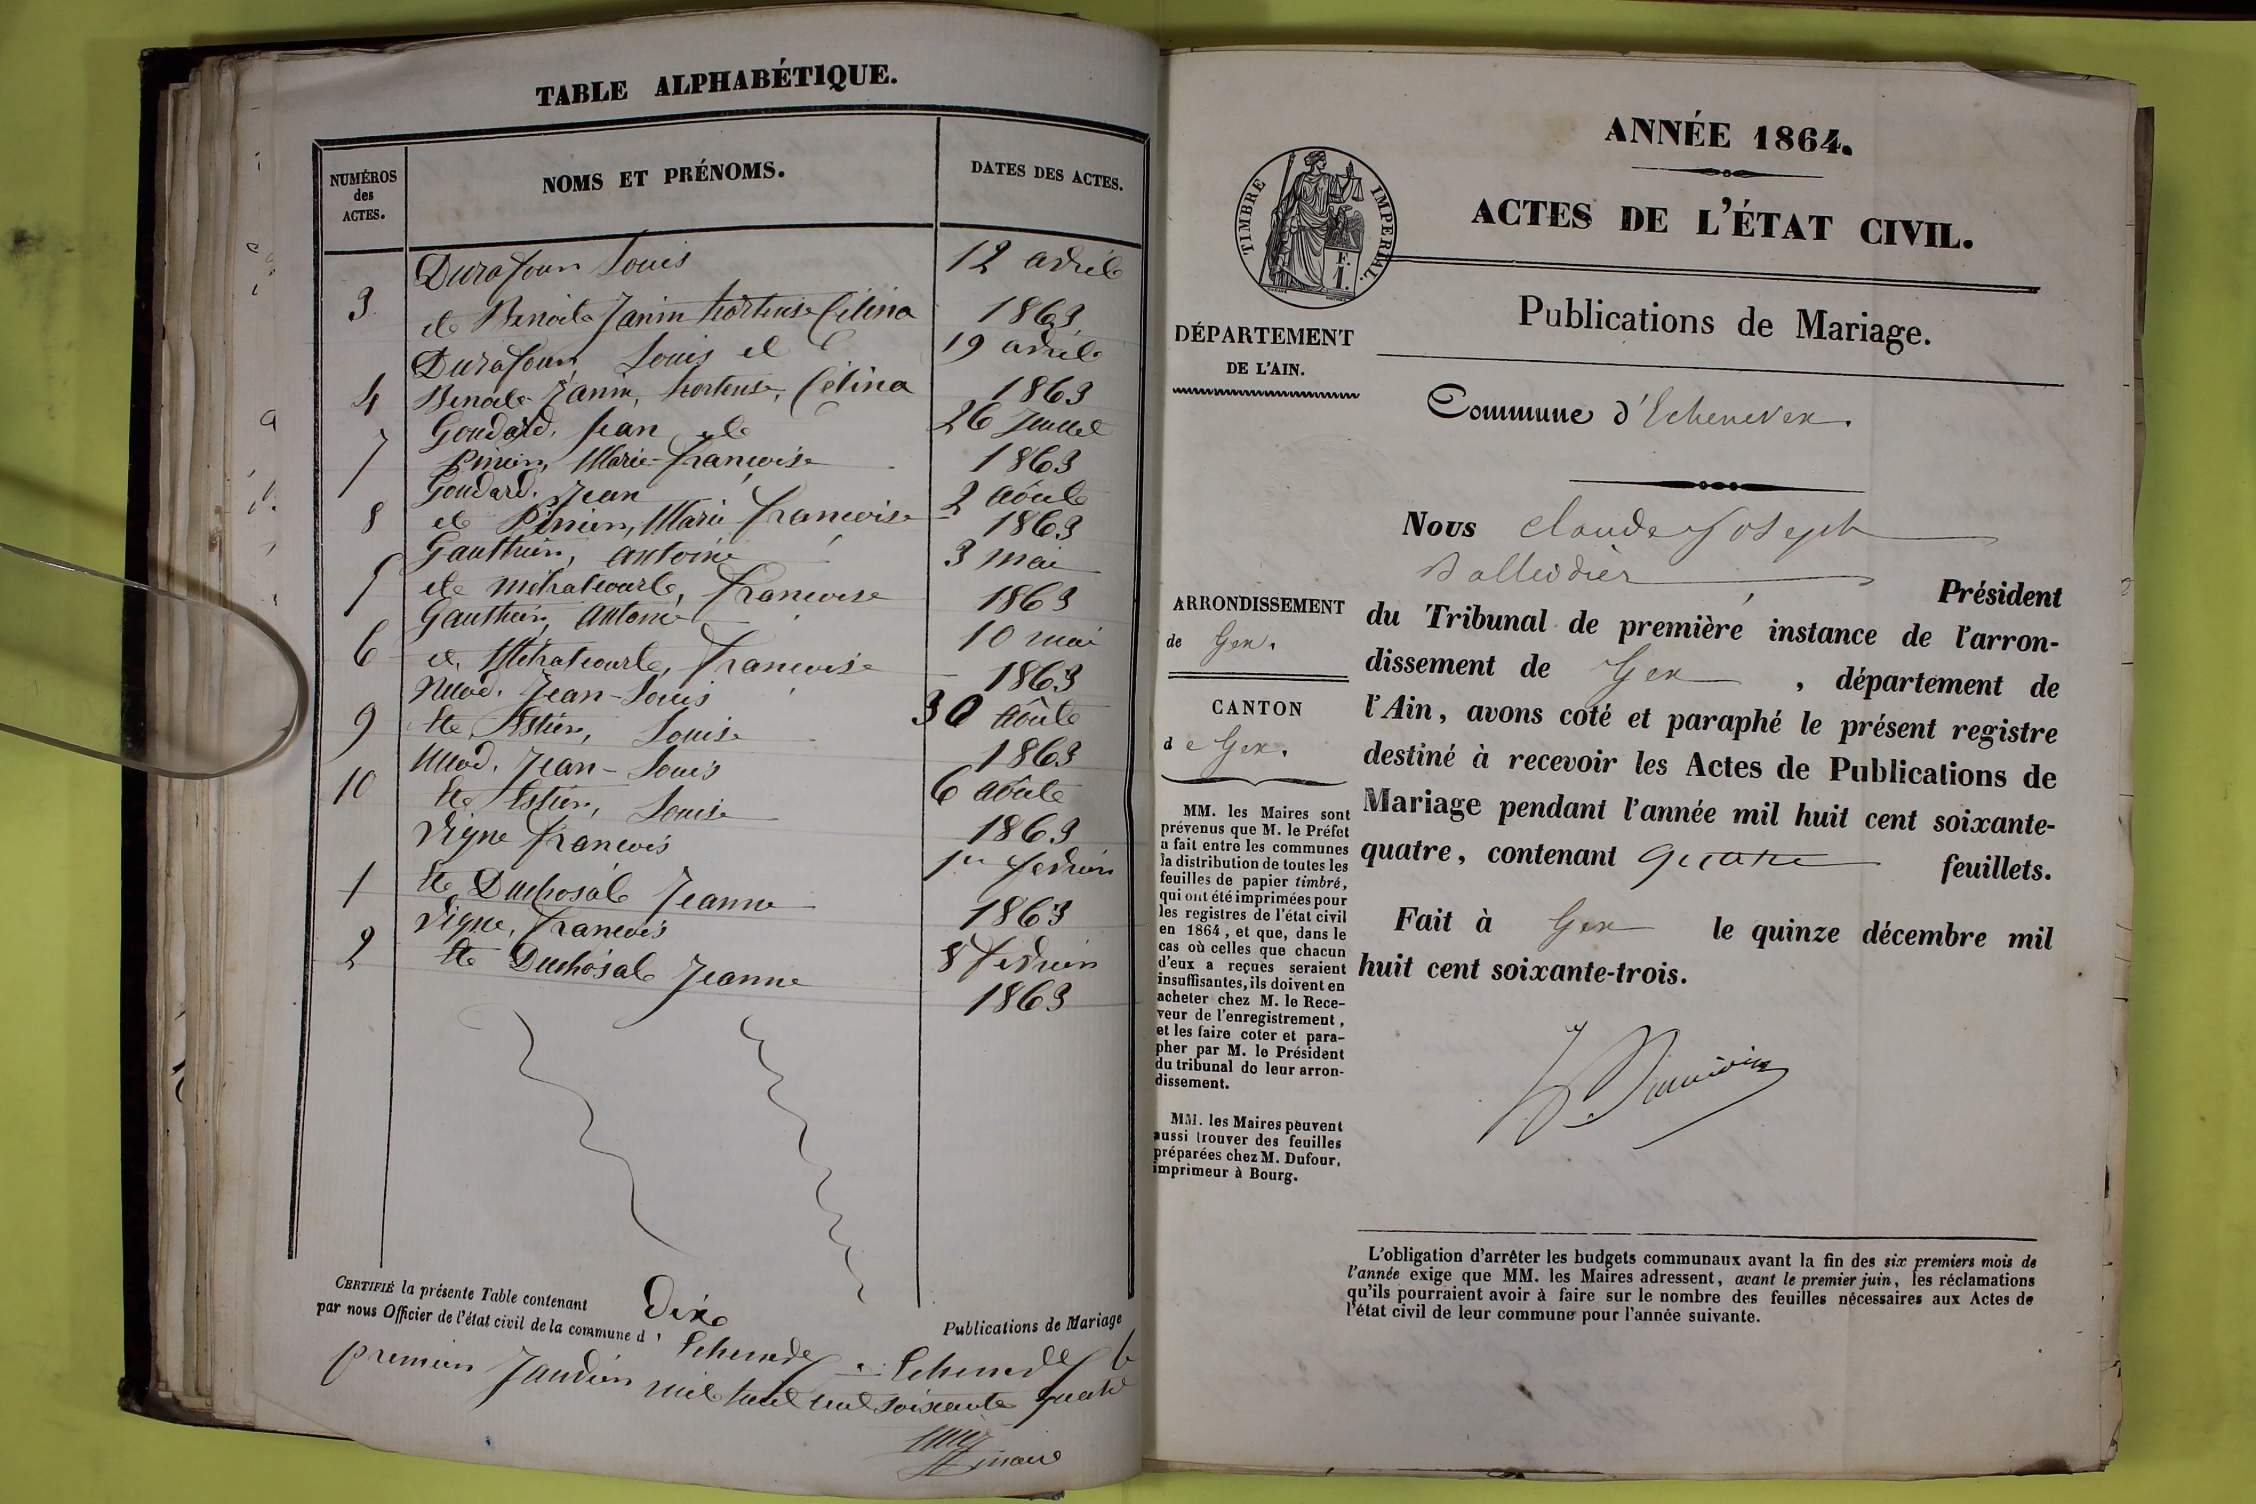 TABLE ALPHABÉTIQUE.
NUMÉROS
des
ACTES.
NOMS ET PRÉNOMS.
DATES DES ACTES.
Durafour Louis 12 avril
3 et Benoit Janin hortense Célina 1863
Durafour Louis et 19 avril
4 Benoit Janin, hortense, Célina 1863
Goudard, Jean et 26 Juillet
7 Pinier, Marie-françoise 1863
Goudard, Jean 2 août
8 et Pinier, Marie françoise 1863
Gauthier, antoine 3 mai
5 et françoise 1863
Gauthier, Antoine 10 mai
6 et françoise 1863
Jean-Louis 30 août
9 et Estier, Louise 1863
Jean-Louis 6 août
10 et Estier, Louise 1863
Vigne françois 1er février
1 et Duchosal Jeanne 1863
Vigne, françois 8 février
2 et Duchosal Jeanne 1863
CERTIFIÉ la présente Table contenant Dix Publications de Mariage
par nous Officier de l'état civil de la commune d'
premier Janvier mil huit cent soixante quatre
ANNÉE 1864.
ACTES DE L'ÉTAT CIVIL.
TIMBRE IMPERIAL.
F.
1.
Publications de Mariage.
DÉPARTEMENT
DE L'AIN.
Commune d'Echenevex.
Nous Claude Joseph
Président
du Tribunal de première instance de l'arron-
dissement de Gex, département de
l'Ain, avons coté et paraphé le présent registre
destiné à recevoir les Actes de Publications de
Mariage pendant l'année mil huit cent soixante-
quatre, contenant quatre feuillets.
Fait à Gex le quinze décembre mil
huit cent soixante-trois.
ARRONDISSEMENT
de Gex.
CANTON
de Gex.
MM. les Maires sont
prévenus que M. le Préfet
a fait entre les communes
la distribution de toutes les
feuilles de papier timbré,
qui ont été imprimées pour
les registres de l'état civil
en 1864, et que, dans le
cas où celles que chacun
d'eux a reçues seraient
insuffisantes, ils doivent en
acheter chez M. le Rece-
veur de l'enregistrement,
et les faire coter et para-
pher par M. le Président
du tribunal de leur arron-
dissement.
MM. les Maires peuvent
aussi trouver des feuilles
préparées chez M. Dufour,
imprimeur à Bourg.
L'obligation d'arrêter les budgets communaux avant la fin des six premiers mois de
l'année exige que MM. les Maires adressent, avant le premier juin, les réclamations
qu'ils pourraient avoir à faire sur le nombre des feuilles nécessaires aux Actes de
l'état civil de leur commune pour l'année suivante.